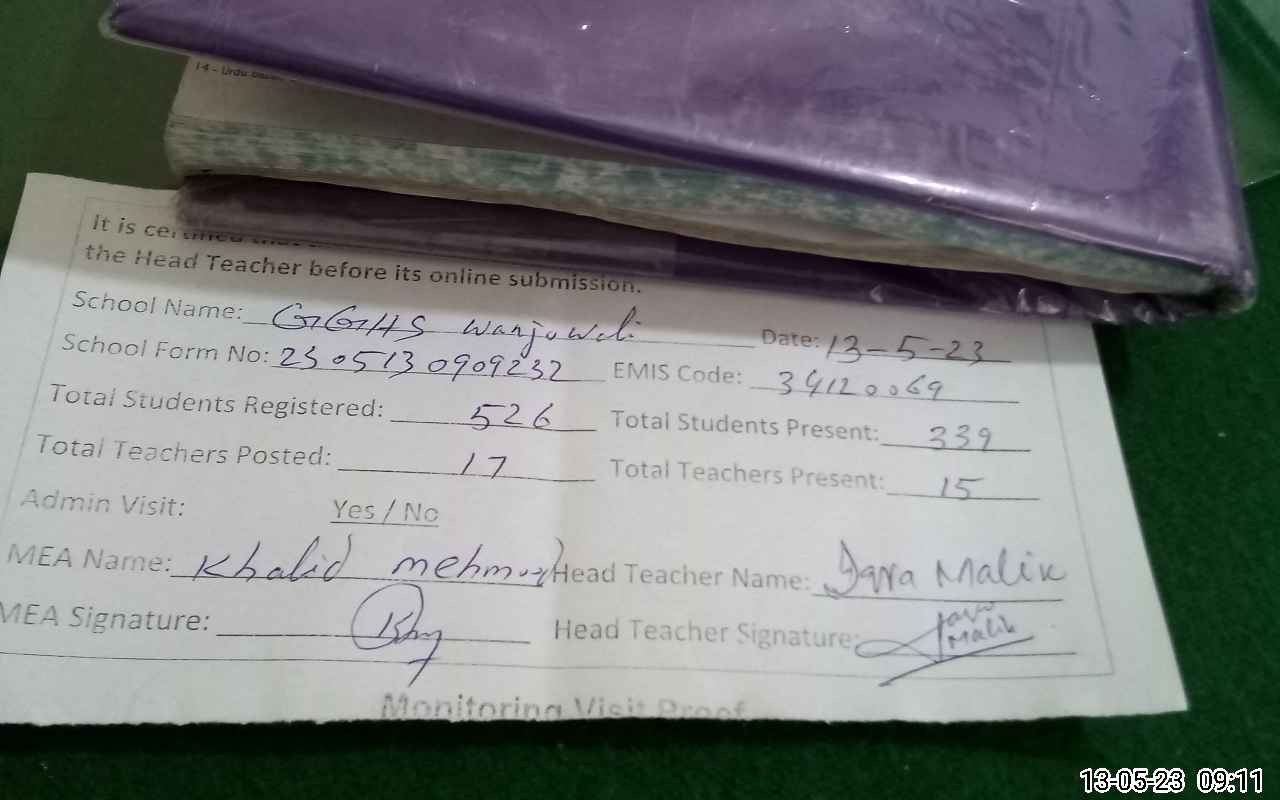 14 - Urdu
It is
the Head Teacher before its online submission.
School Name: GGHS Wanjowali Date: 13-5-23
School Form No: 2305130909232 EMIS Code: 34120069
Total Students Registered: 526 Total Students Present: 339
Total Teachers Posted: 17 Total Teachers Present: 15
Admin Visit: Yes / No
MEA Name: Khalid mehmood Head Teacher Name: Malik
MEA Signature: Head Teacher Signature: Malik
Monitoring Visit Proof
13-05-23 09:11